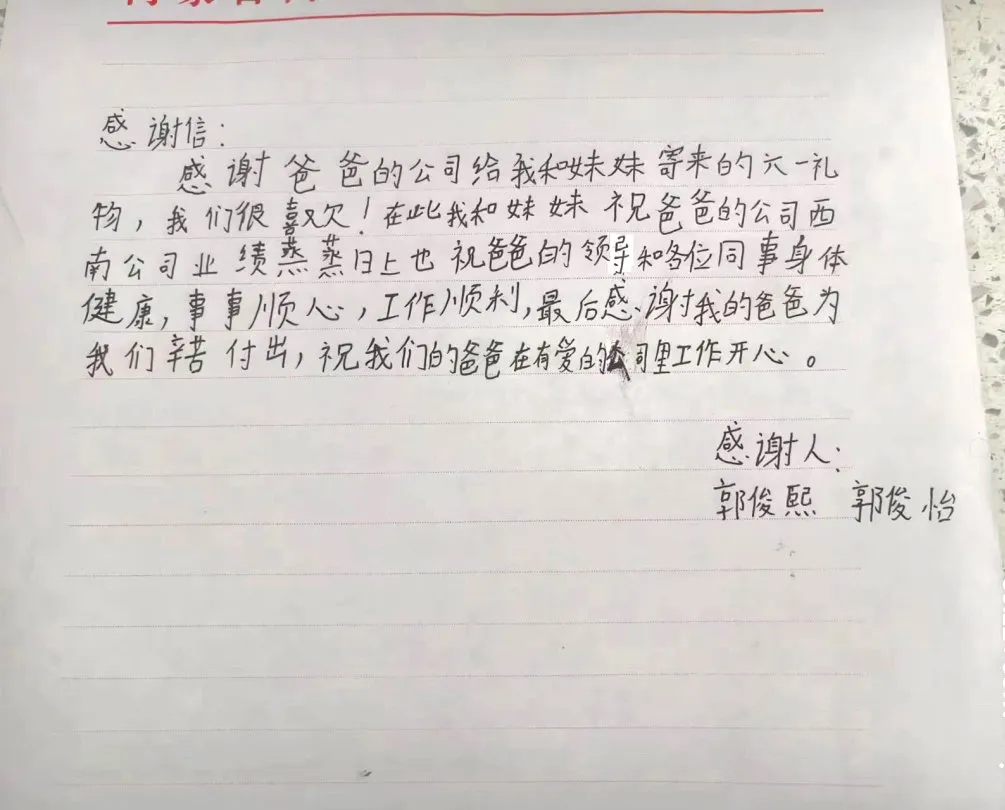 感谢信：
感谢爸爸的公司给我和妹妹寄来的六一礼
物，我们很喜欢！在此我和妹妹祝爸爸的公司西
南公司业绩蒸蒸日上也祝爸爸的领导和各位同事身体
健康，事事顺心，工作顺利，最后感谢我的爸爸为
我们辛苦付出，祝我们的爸爸在有爱的公司里工作开心。
感谢人：
郭俊熙 郭俊怡